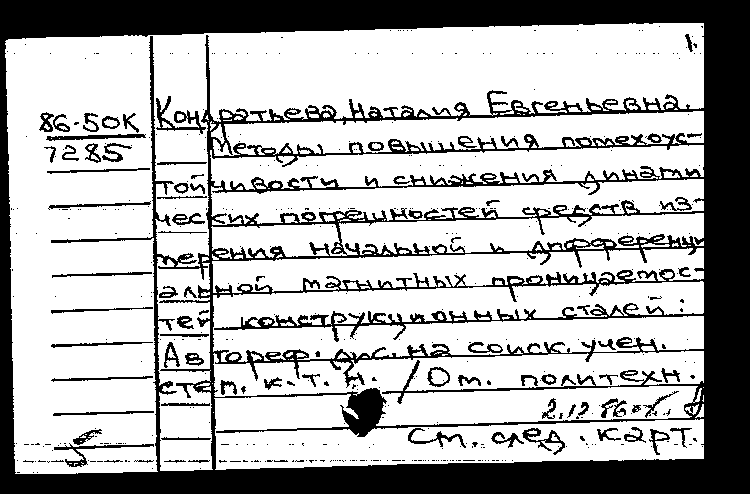 1.
86-50К Кондратьева, Наталия Евгеньевна.
7285 Методы повышения помехоус-
тойчивости и снижения динами
ческих погрешностей средств из-
мерения начальной и дифференци
альной магнитных проницаемос-
тей конструкционных сталей:
Автореф. дис. на соиск. учен.
степ. к.т.н. / Ом. политехн.
2.12.86
См. след. карт.